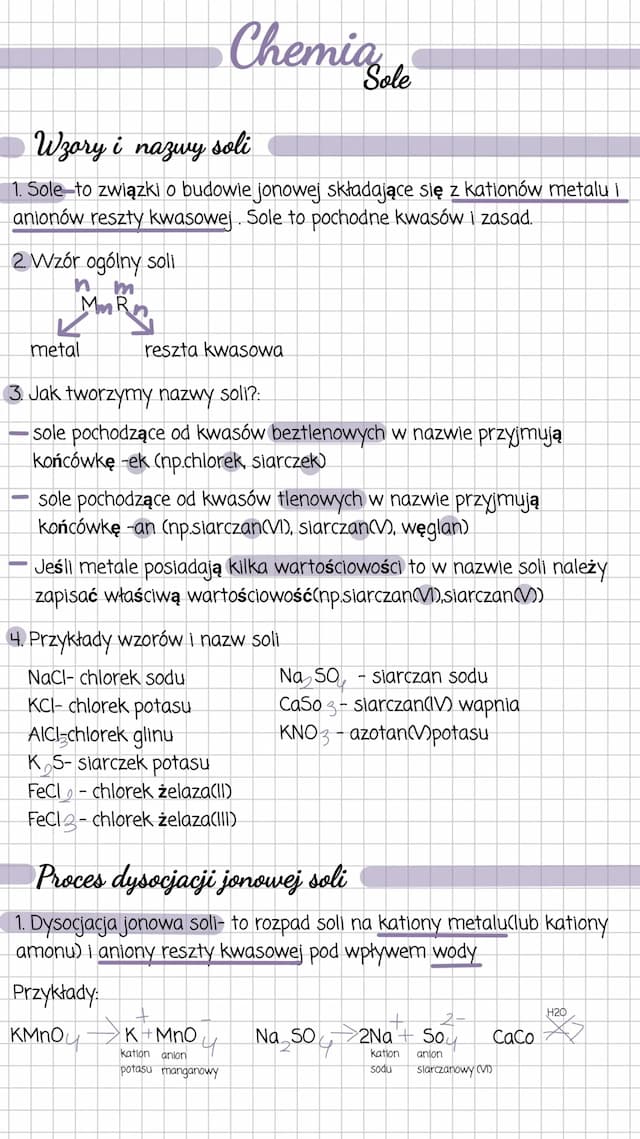 Chemia
Sole
Wzory i nazwy soli
1. Sole-to związki o budowie jonowej składające się z kationów metalu i
anionów reszty kwasowej. Sole to pochodne kwasów i zasad.
2. Wzór ogólny soli
n m
MmRn
metal reszta kwasowa
3. Jak tworzymy nazwy soli?:
- sole pochodzące od kwasów beztlenowych w nazwie przyjmują
końcówkę -ek (np.chlorek, siarczek)
- sole pochodzące od kwasów tlenowych w nazwie przyjmują
końcówkę -an (np.siarczan(VI), siarczan(V), węglan)
- Jeśli metale posiadają kilka wartościowości to w nazwie soli należy
zapisać właściwą wartościowość(np.siarczan(VI),siarczan(V))
4. Przykłady wzorów i nazw soli
NaCl- chlorek sodu Na2SO4 - siarczan sodu
KCl- chlorek potasu CaSo3- siarczan(IV) wapnia
AlCl3-chlorek glinu KNO3 - azotan(V)potasu
K2S- siarczek potasu
FeCl2 - chlorek żelaza(II)
FeCl3 - chlorek żelaza(III)
Proces dysocjacji jonowej soli
1. Dysocjacja jonowa soli- to rozpad soli na kationy metalu(lub kationy
amonu) i aniony reszty kwasowej pod wpływem wody
Przykłady:
KMnO4 → K+ + MnO4- Na2SO4 → 2Na+ + So4 2- CaCo H2O
kation anion kation anion
potasu manganowy sodu siarczanowy (VI)